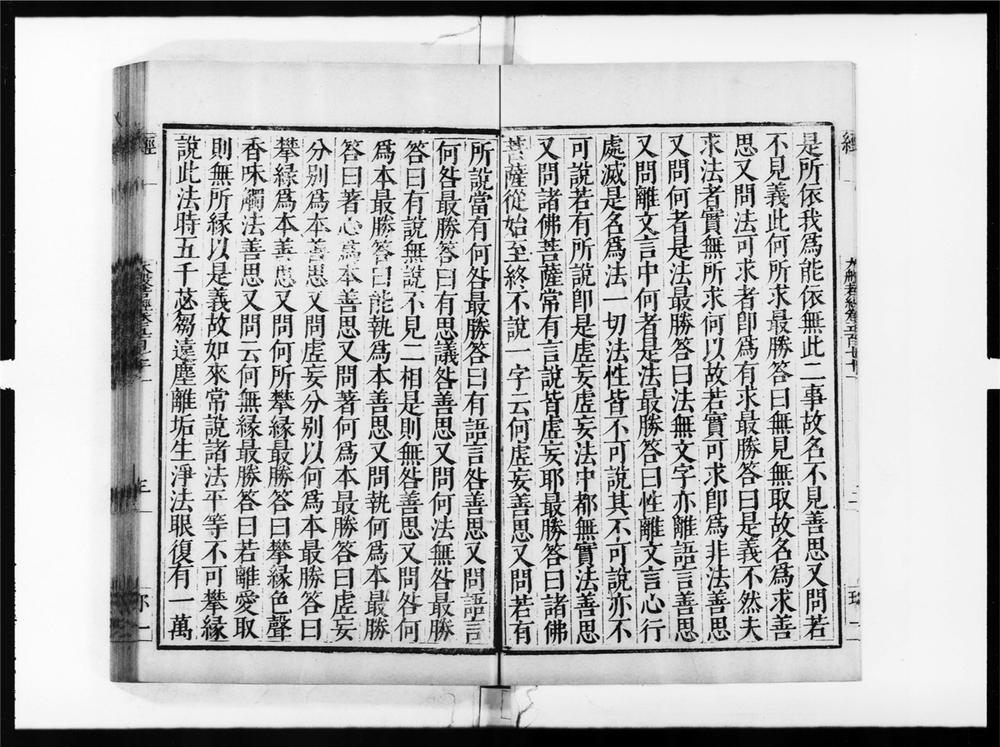 是所依我爲能依無此二事故名不見善思又問若
不見義此何所求最勝答曰無見無取故名爲求善
思又問法可求者卽爲有求最勝答曰是義不然夫
求法者實無所求何以故若實可求卽爲非法善思
又問何者是法最勝答曰法無文字亦離語言善思
又問離文言中何者是法最勝答曰性離文言心行
處滅是名爲法一切法性皆不可說其不可說亦不
可說若有所說卽是虛妄虛妄法中都無實法善思
又問諸佛菩薩常有言說皆虛妄耶最勝答曰諸佛
菩薩從始至終不說一字云何虛妄善思又問若有
所說當有何咎最勝答曰有語言咎善思又問語言
何咎最勝答曰有思議咎善思又問何法無咎最勝
答曰有說無說不見二相是則無咎善思又問咎何
爲本最勝答曰能執爲本善思又問執何爲本最勝
答曰著心爲本善思又問著何爲本最勝答曰虛妄
分別爲本善思又問虛妄分別以何爲本最勝答曰
攀緣爲本善思又問何所攀緣最勝答曰攀緣色聲
香味觸法善思又問云何無緣最勝答曰若離愛取
則無所緣以是義故如來常說諸法平等不可攀緣
說此法時五千苾芻遠塵離垢生淨法眼復有一萬
經
經